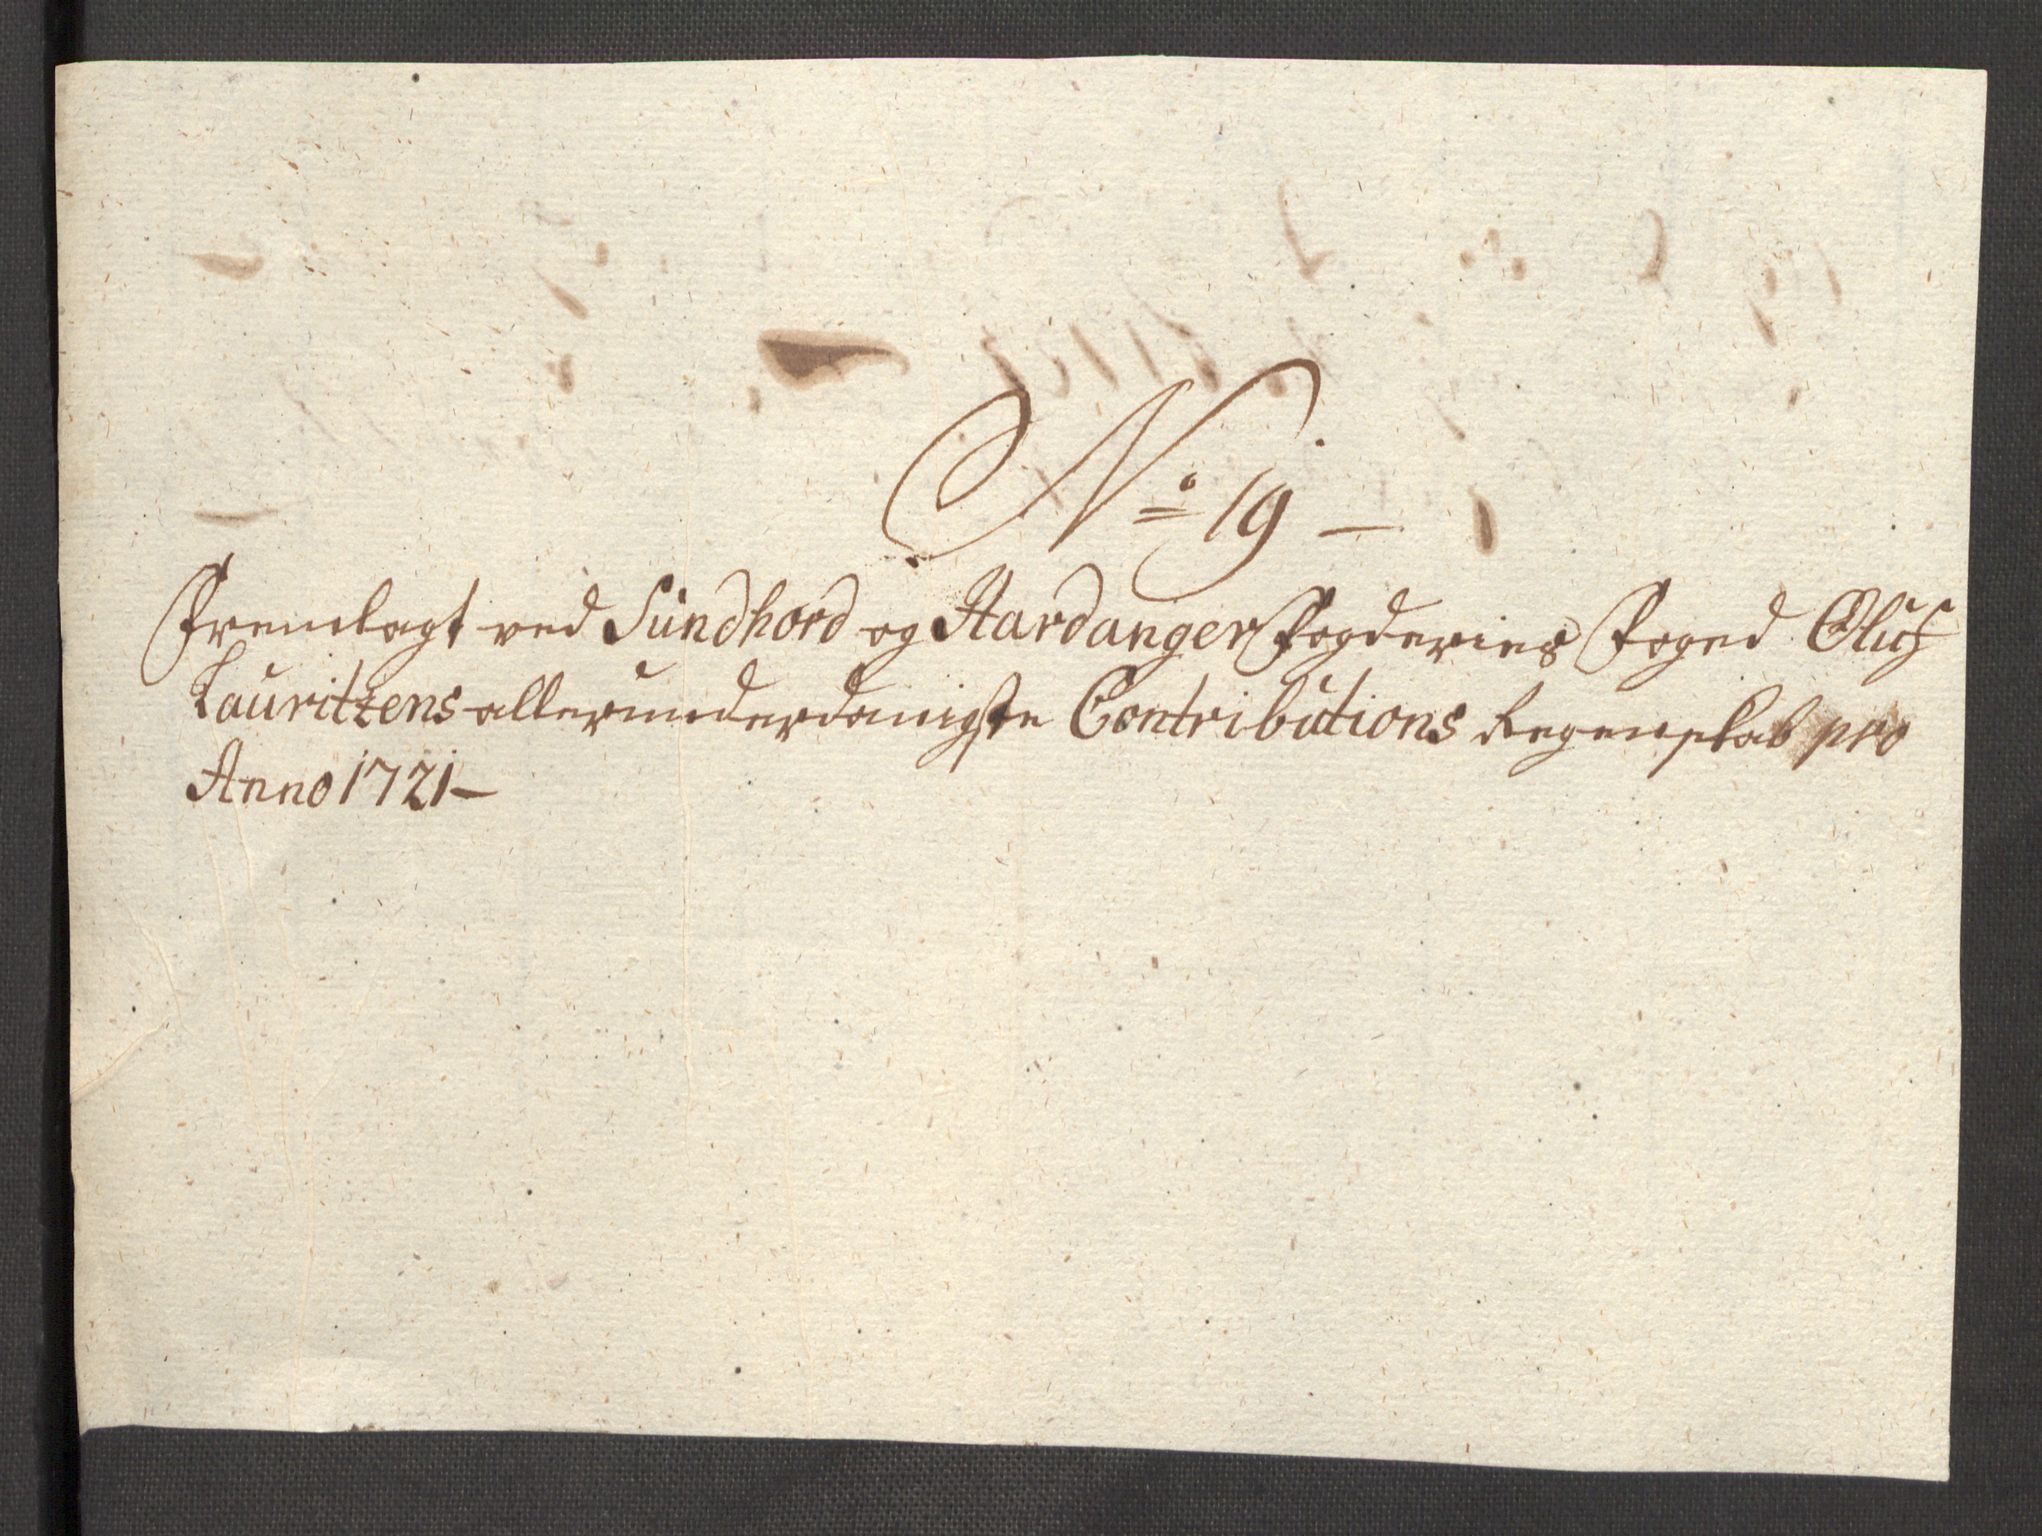 No: 19 —
Fremlagt ved Sundhord og Hardanger Fogderies Foged Oluf
Lauritzens allerunderdanigste Contributions Regenskab pro
Anno 1721 —